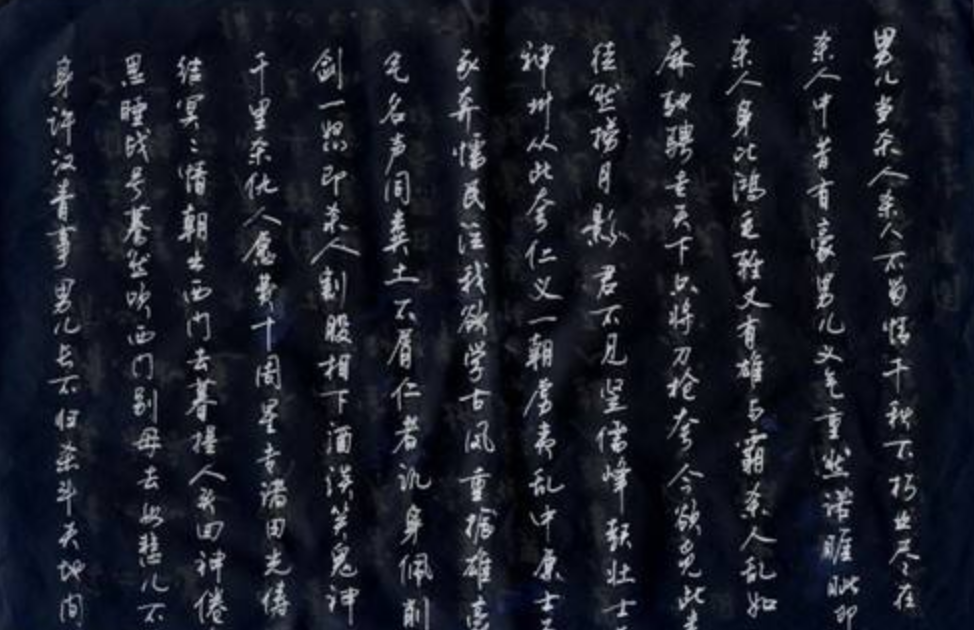 男儿当杀人杀人不留情千秋不朽业尽在
杀人中昔有豪男儿义气重然诺睚眦即
杀人身比鸿毛轻又有雄与霸杀人乱如
麻驰骋走天下只将刀枪夸今欲觅此类
徒然捞月影君不见竖儒峰壮士
神州从此夸仁义一朝虏夷乱中原士子
豕奔懦民泣我欲学古风重振雄豪
气名声同粪土不屑仁者讥身佩削
剑一怒即杀人割股相下酒谈笑鬼神
千里杀仇人愿费十周星专诸田光俦
结冥〻情朝出西门去暮提人头回神倦
思睡战号蓦然吹西门别母去母悲儿不
身许汉青事男儿长不归杀斗天地间